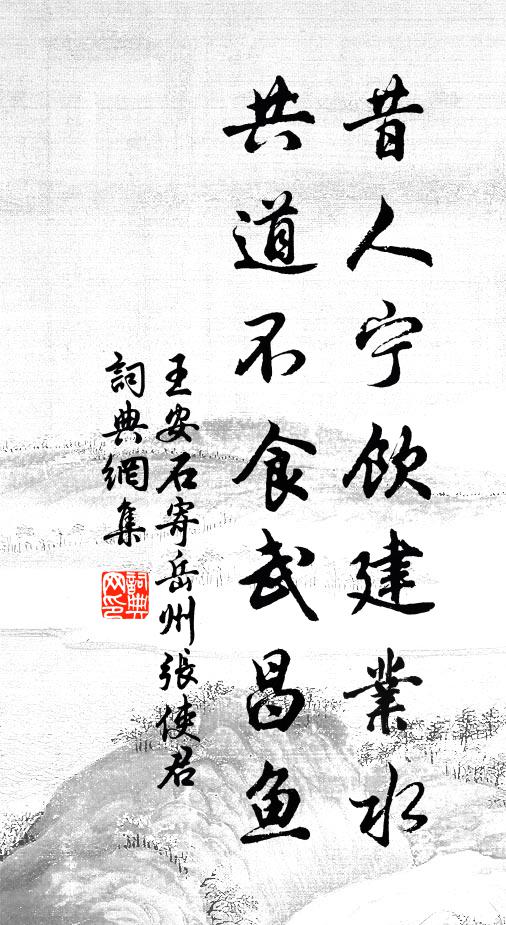 昔人宁飲建業水
共道不食武昌鱼
王安石寄岳州張使君
詞典網集
詞典網印